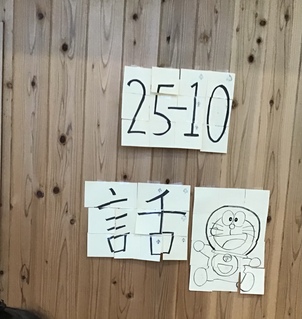 25-10
話